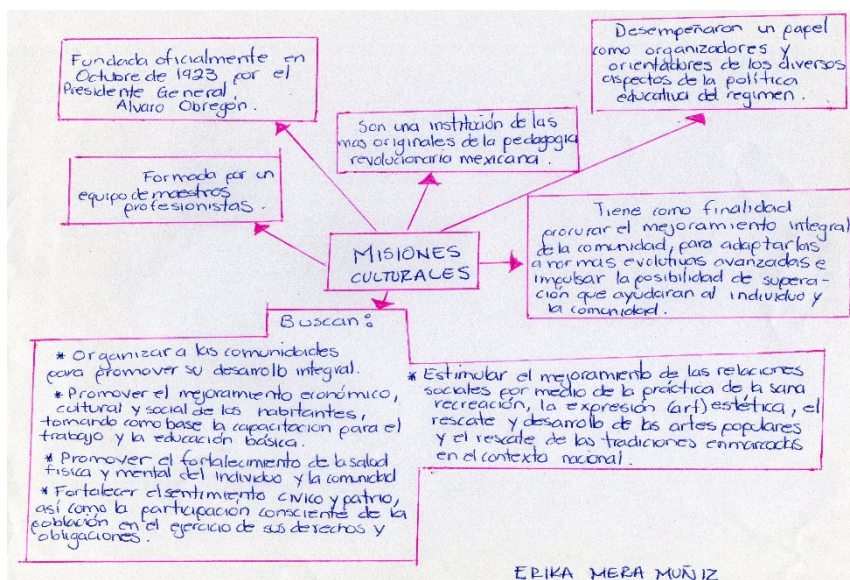 Fundada oficialmente en
Octubre de 1923 por el
Presidente General,
Alvaro Obregón.
Desempeñaron un papel
como organizadores y
orientadores de los diversos
aspectos de la política
educativa del regimen.
Son una institución de las
mas originales de la pedagogía
revolucionaria mexicana.
Formada por un
equipo de maestros
profesionistas.
Tiene como finalidad
procurar el mejoramiento integral
de la comunidad, para adaptarlas
a normas evolutivas avanzadas e
impulsar la posibilidad de supera-
ción que ayudaran al individuo y
la comunidad.
MISIONES
CULTURALES
Buscan:
* Organizar a las comunidades
para promover su desarrollo integral.
* Promover el mejoramiento económico,
cultural y social de los habitantes,
tomando como base la capacitación para el
trabajo y la educación básica.
* Promover el fortalecimiento de la salud
física y mental del individuo y la comunidad
* Fortalecer el sentimiento cívico y patrio,
así como la participación consciente de la
población en el ejercicio de sus derechos y
obligaciones.
* Estimular el mejoramiento de las relaciones
sociales por medio de la práctica de la sana
recreación, la expresión (art) estética, el
rescate y desarrollo de las artes populares
y el rescate de las tradiciones enmarcadas
en el contexto nacional.
ERIKA MERA MUÑIZ